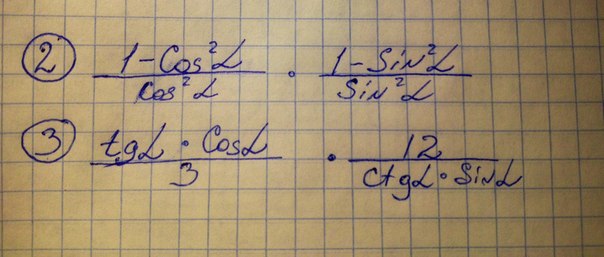 ② (1-Cos²α)/(Cos²α) · (1-Sin²α)/(Sin²α)
③ (tgα · Cosα)/3 · 12/(Ctgα · Sinα)